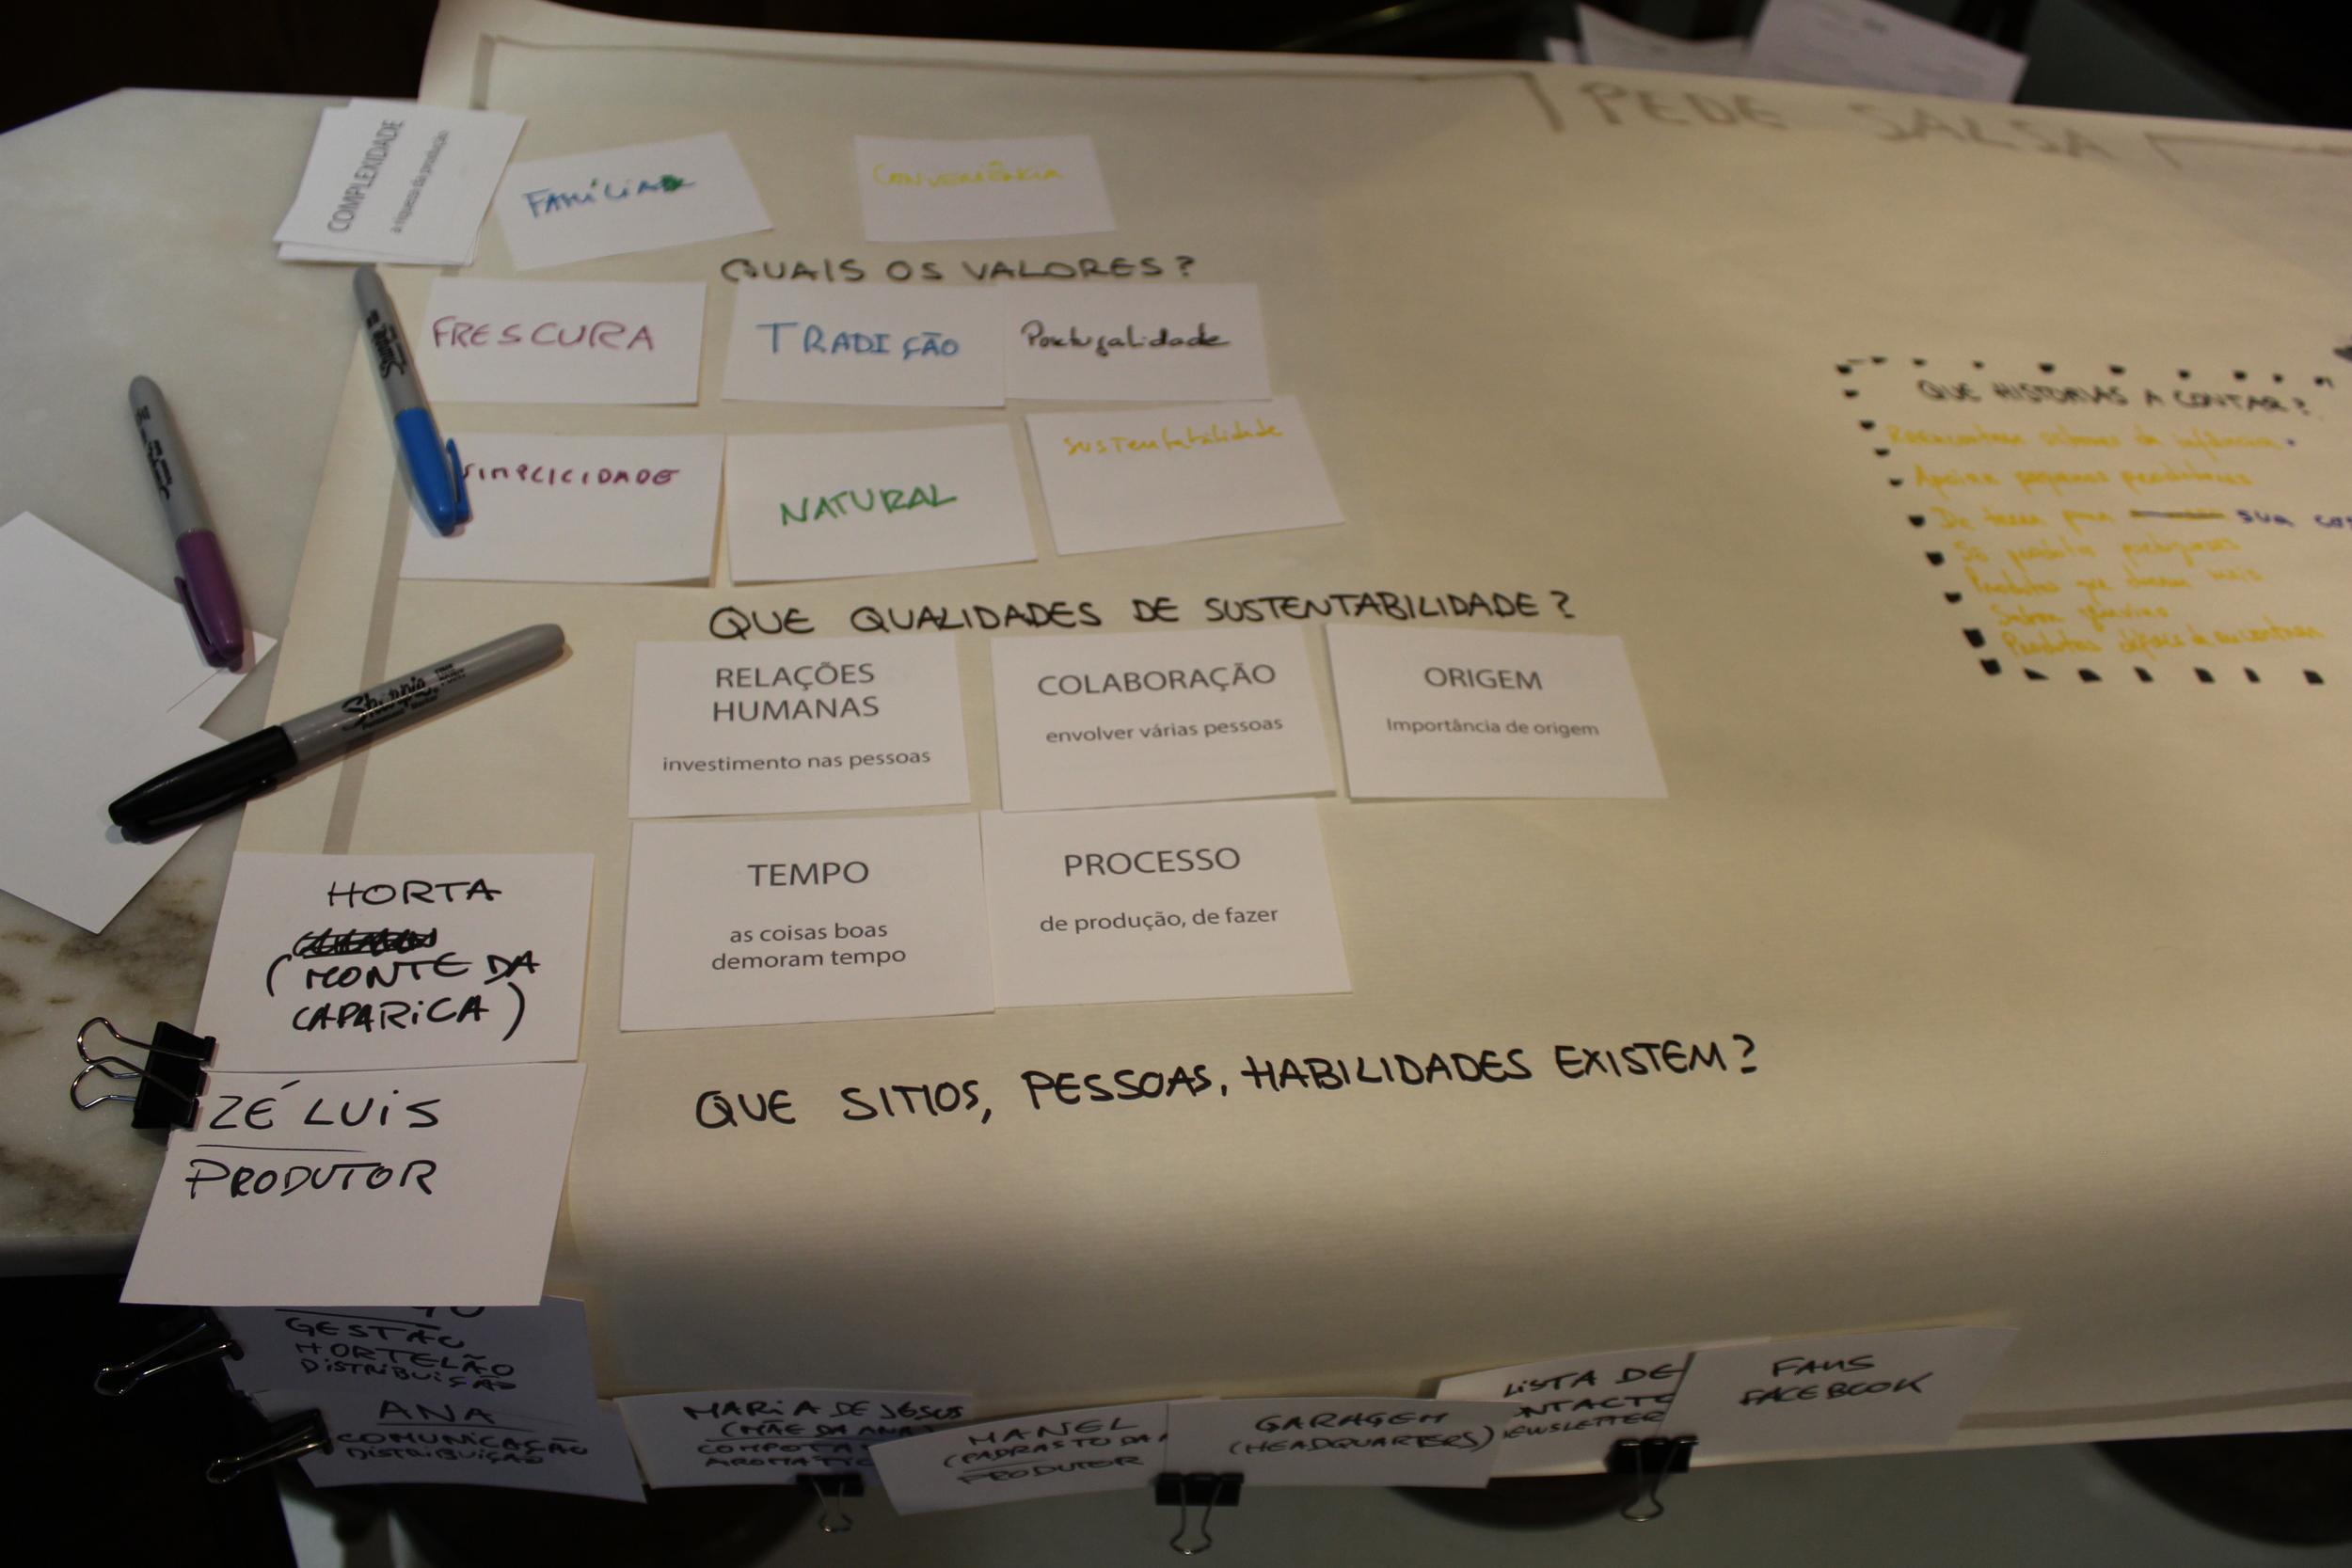 PEDE SALSA
COMPLEXIDADE
a riqueza da produção
FAMÍLIA
CONVENIÊNCIA
QUAIS OS VALORES?
FRESCURA
TRADIÇÃO
Portugalidade
SIMPLICIDADE
NATURAL
Sustentabilidade
QUE HISTORIAS A CONTAR?
Reencontrar sabores da infância
Apoiar pequenos produtores
Da terra para sua
Só produtos portugueses
Produtos que duram mais
Sabor genuíno
Produtos difíceis de encontrar
QUE QUALIDADES DE SUSTENTABILIDADE?
RELAÇÕES
HUMANAS
investimento nas pessoas
COLABORAÇÃO
envolver várias pessoas
ORIGEM
Importância de origem
TEMPO
as coisas boas
demoram tempo
PROCESSO
de produção, de fazer
Sharpie
HORTA
(MONTE DA
CAPARICA)
ZÉ LUIS
PRODUTOR
QUE SITIOS, PESSOAS, HABILIDADES EXISTEM?
GESTÃO
HORTELÃO
DISTRIBUIÇÃO
ANA
COMUNICAÇÃO
DISTRIBUIÇÃO
MARIA DE JESUS
(MÃE DA ANA
COMPOTA
AROMATIC
MANEL
(PADRASTO DA
PRODUTOR
GARAGEM
(HEADQUARTERS)
LISTA DE
NTACTO
EWSLETTER
FANS
FACEBOOK